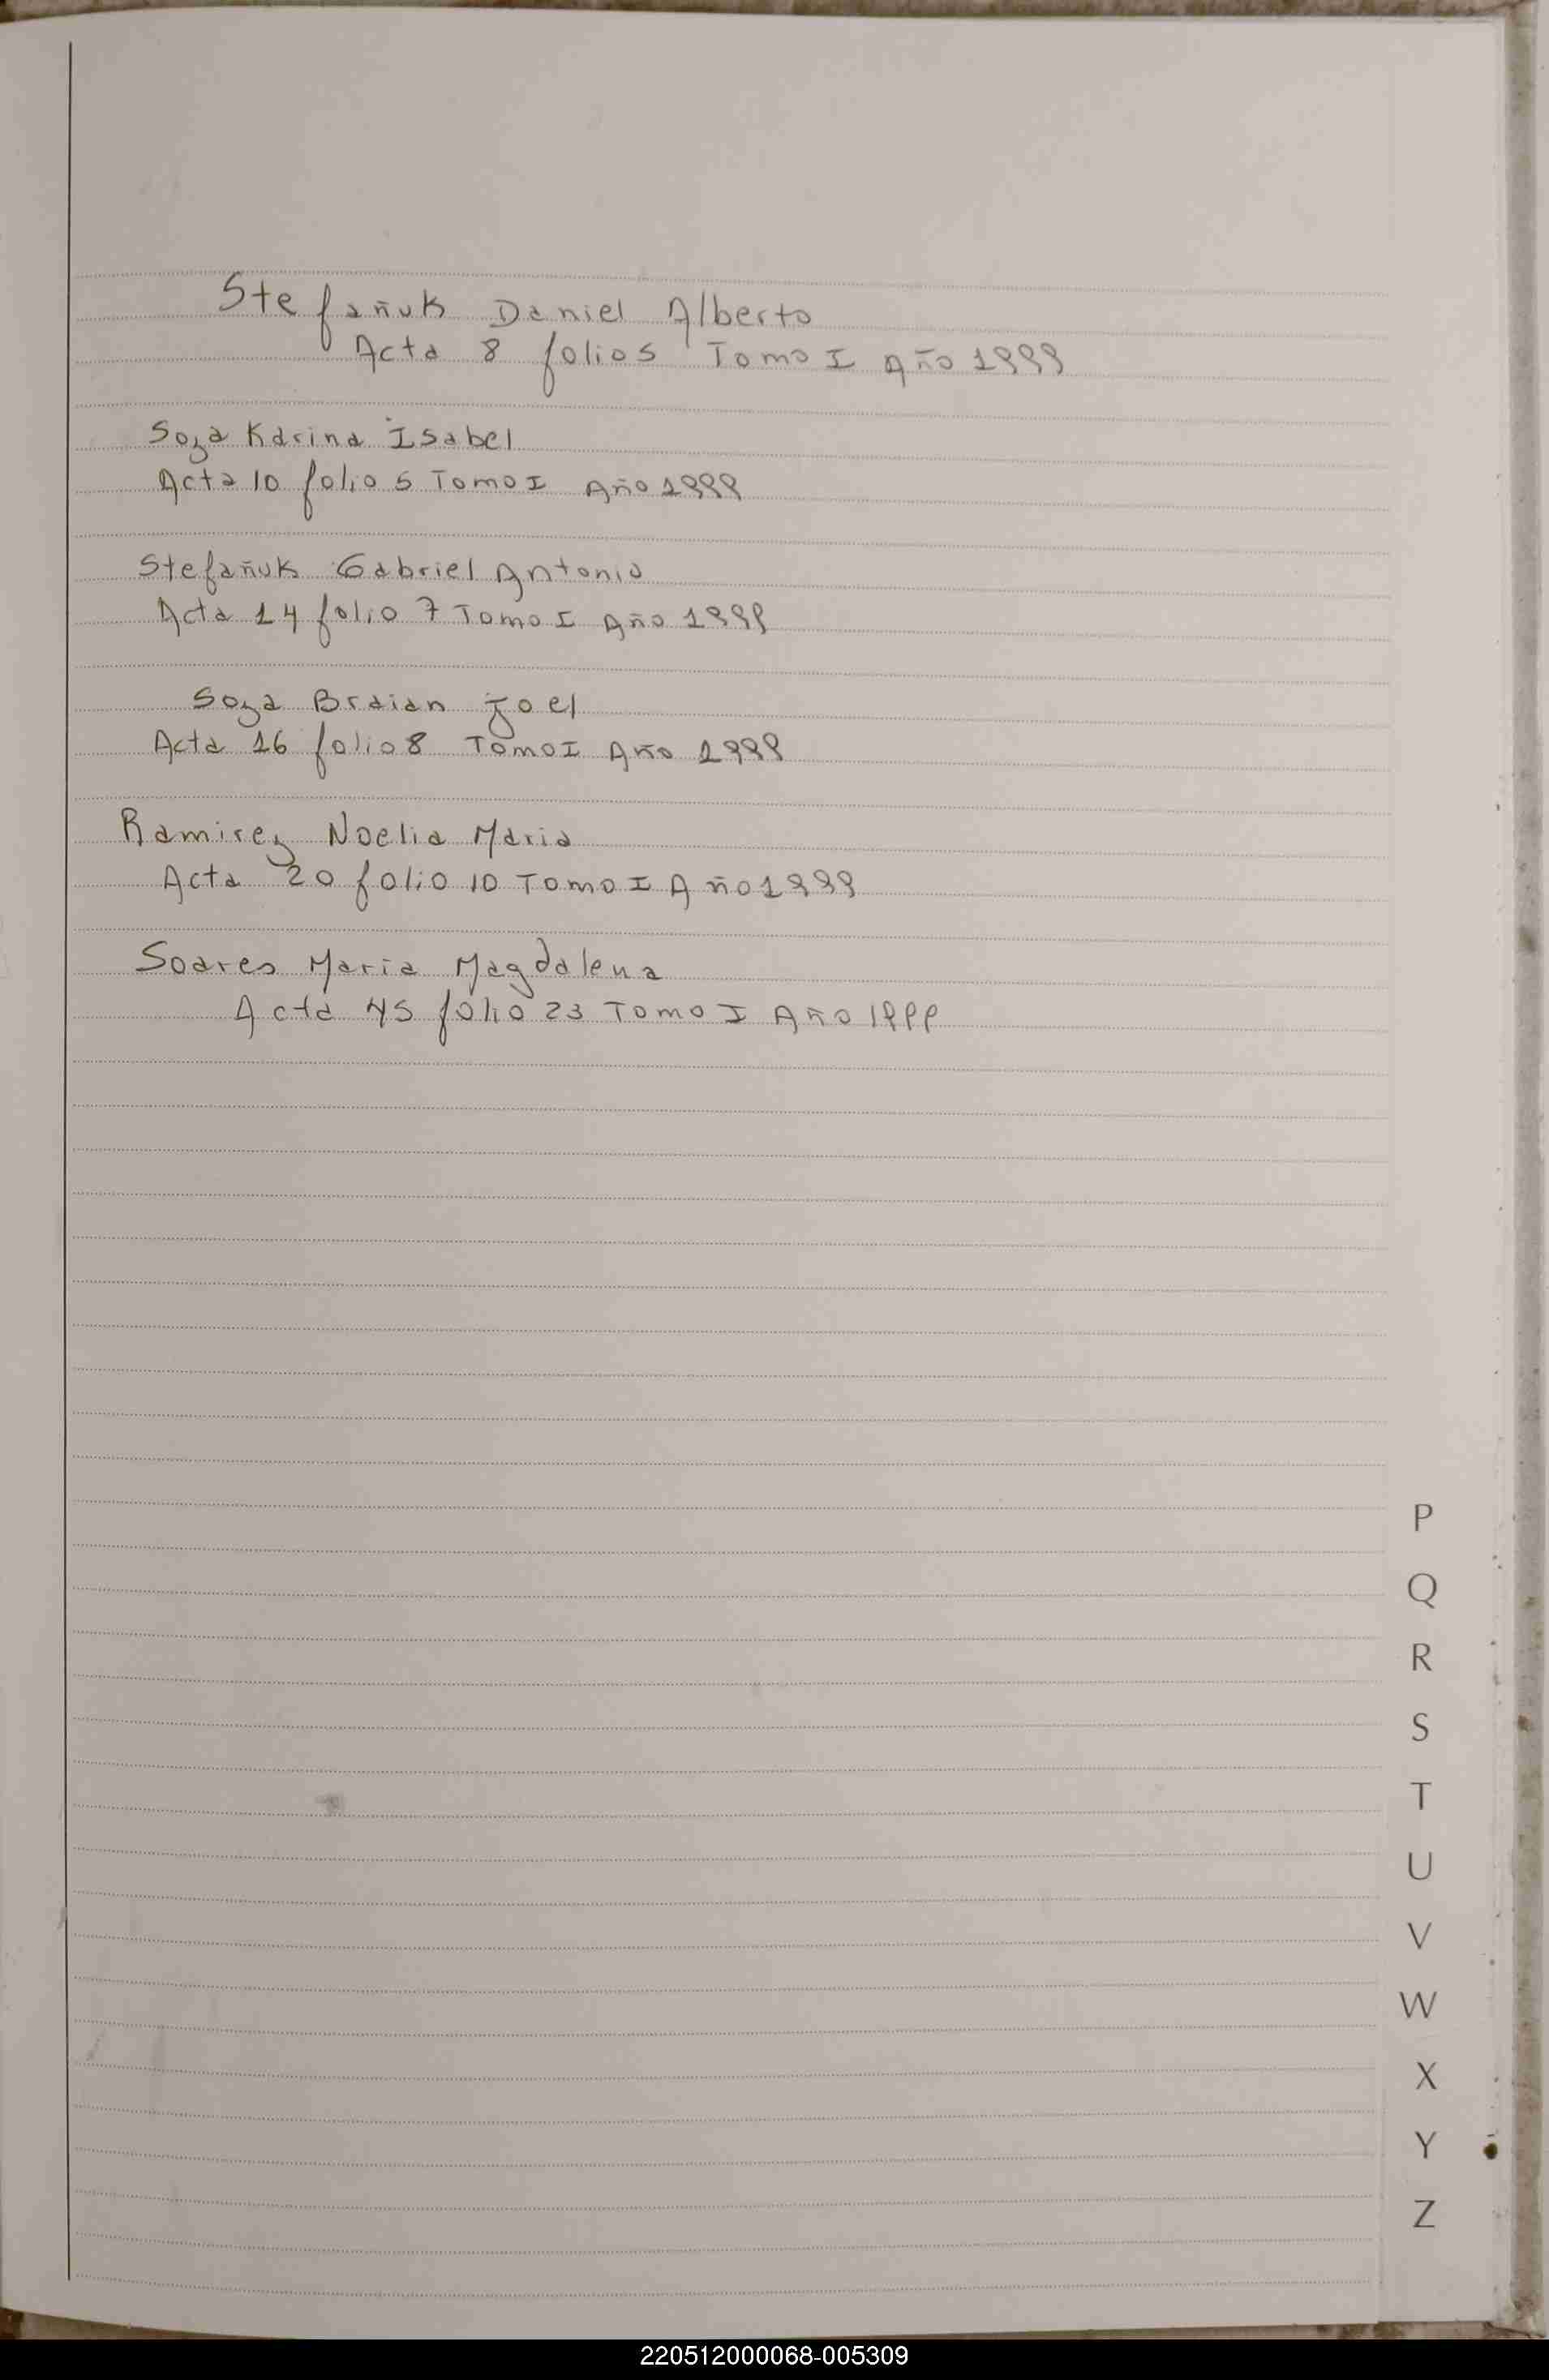 Stefañuk Daniel Alberto
Acta 8 folios Tomo I Año 1999
Soza Karina Isabel
Acta 10 folio 5 Tomo I Año 1999
Stefañuk Gabriel Antonio
Acta 14 folio 7 Tomo I Año 1999
Soza Braian Joel
Acta 16 folio 8 Tomo I Año 1999
Ramirez Noelia Maria
Acta 20 folio 10 Tomo I Año 1999
Soares Maria Magdalena
Acta 45 folio 23 Tomo I Año 1999
P
Q
R
S
T
U
V
W
X
Y
Z
220512000068-005309